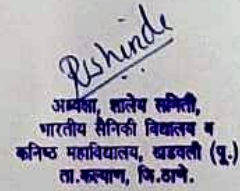 RShinde
अध्यक्षा, शालेय समिती,
भारतीय सैनिकी विद्यालय व
कनिष्ठ महाविद्यालय, खडवली (पू.)
ता.कल्याण, जि.ठाणे.